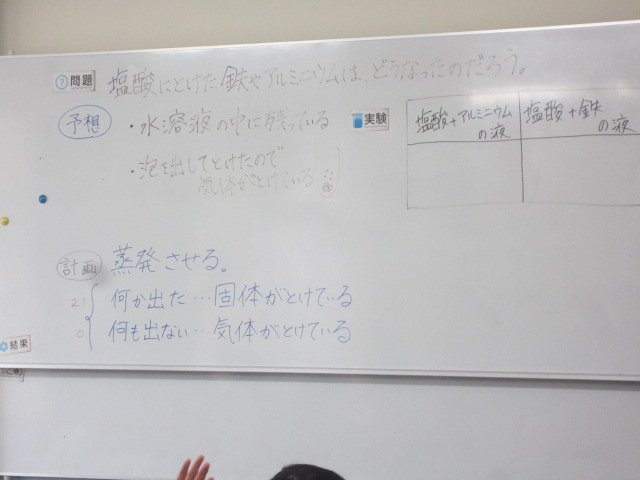 ? 問題 塩酸にとけた鉄やアルミニウムは、どうなったのだろう。
予想
・水溶液の中に残っている
・泡を出してとけたので
気体がとけている
実験
塩酸+アルミニウムの液
塩酸+鉄の液
計画 蒸発させる。
21 何か出た…固体がとけている
0 何も出ない…気体がとけている
結果